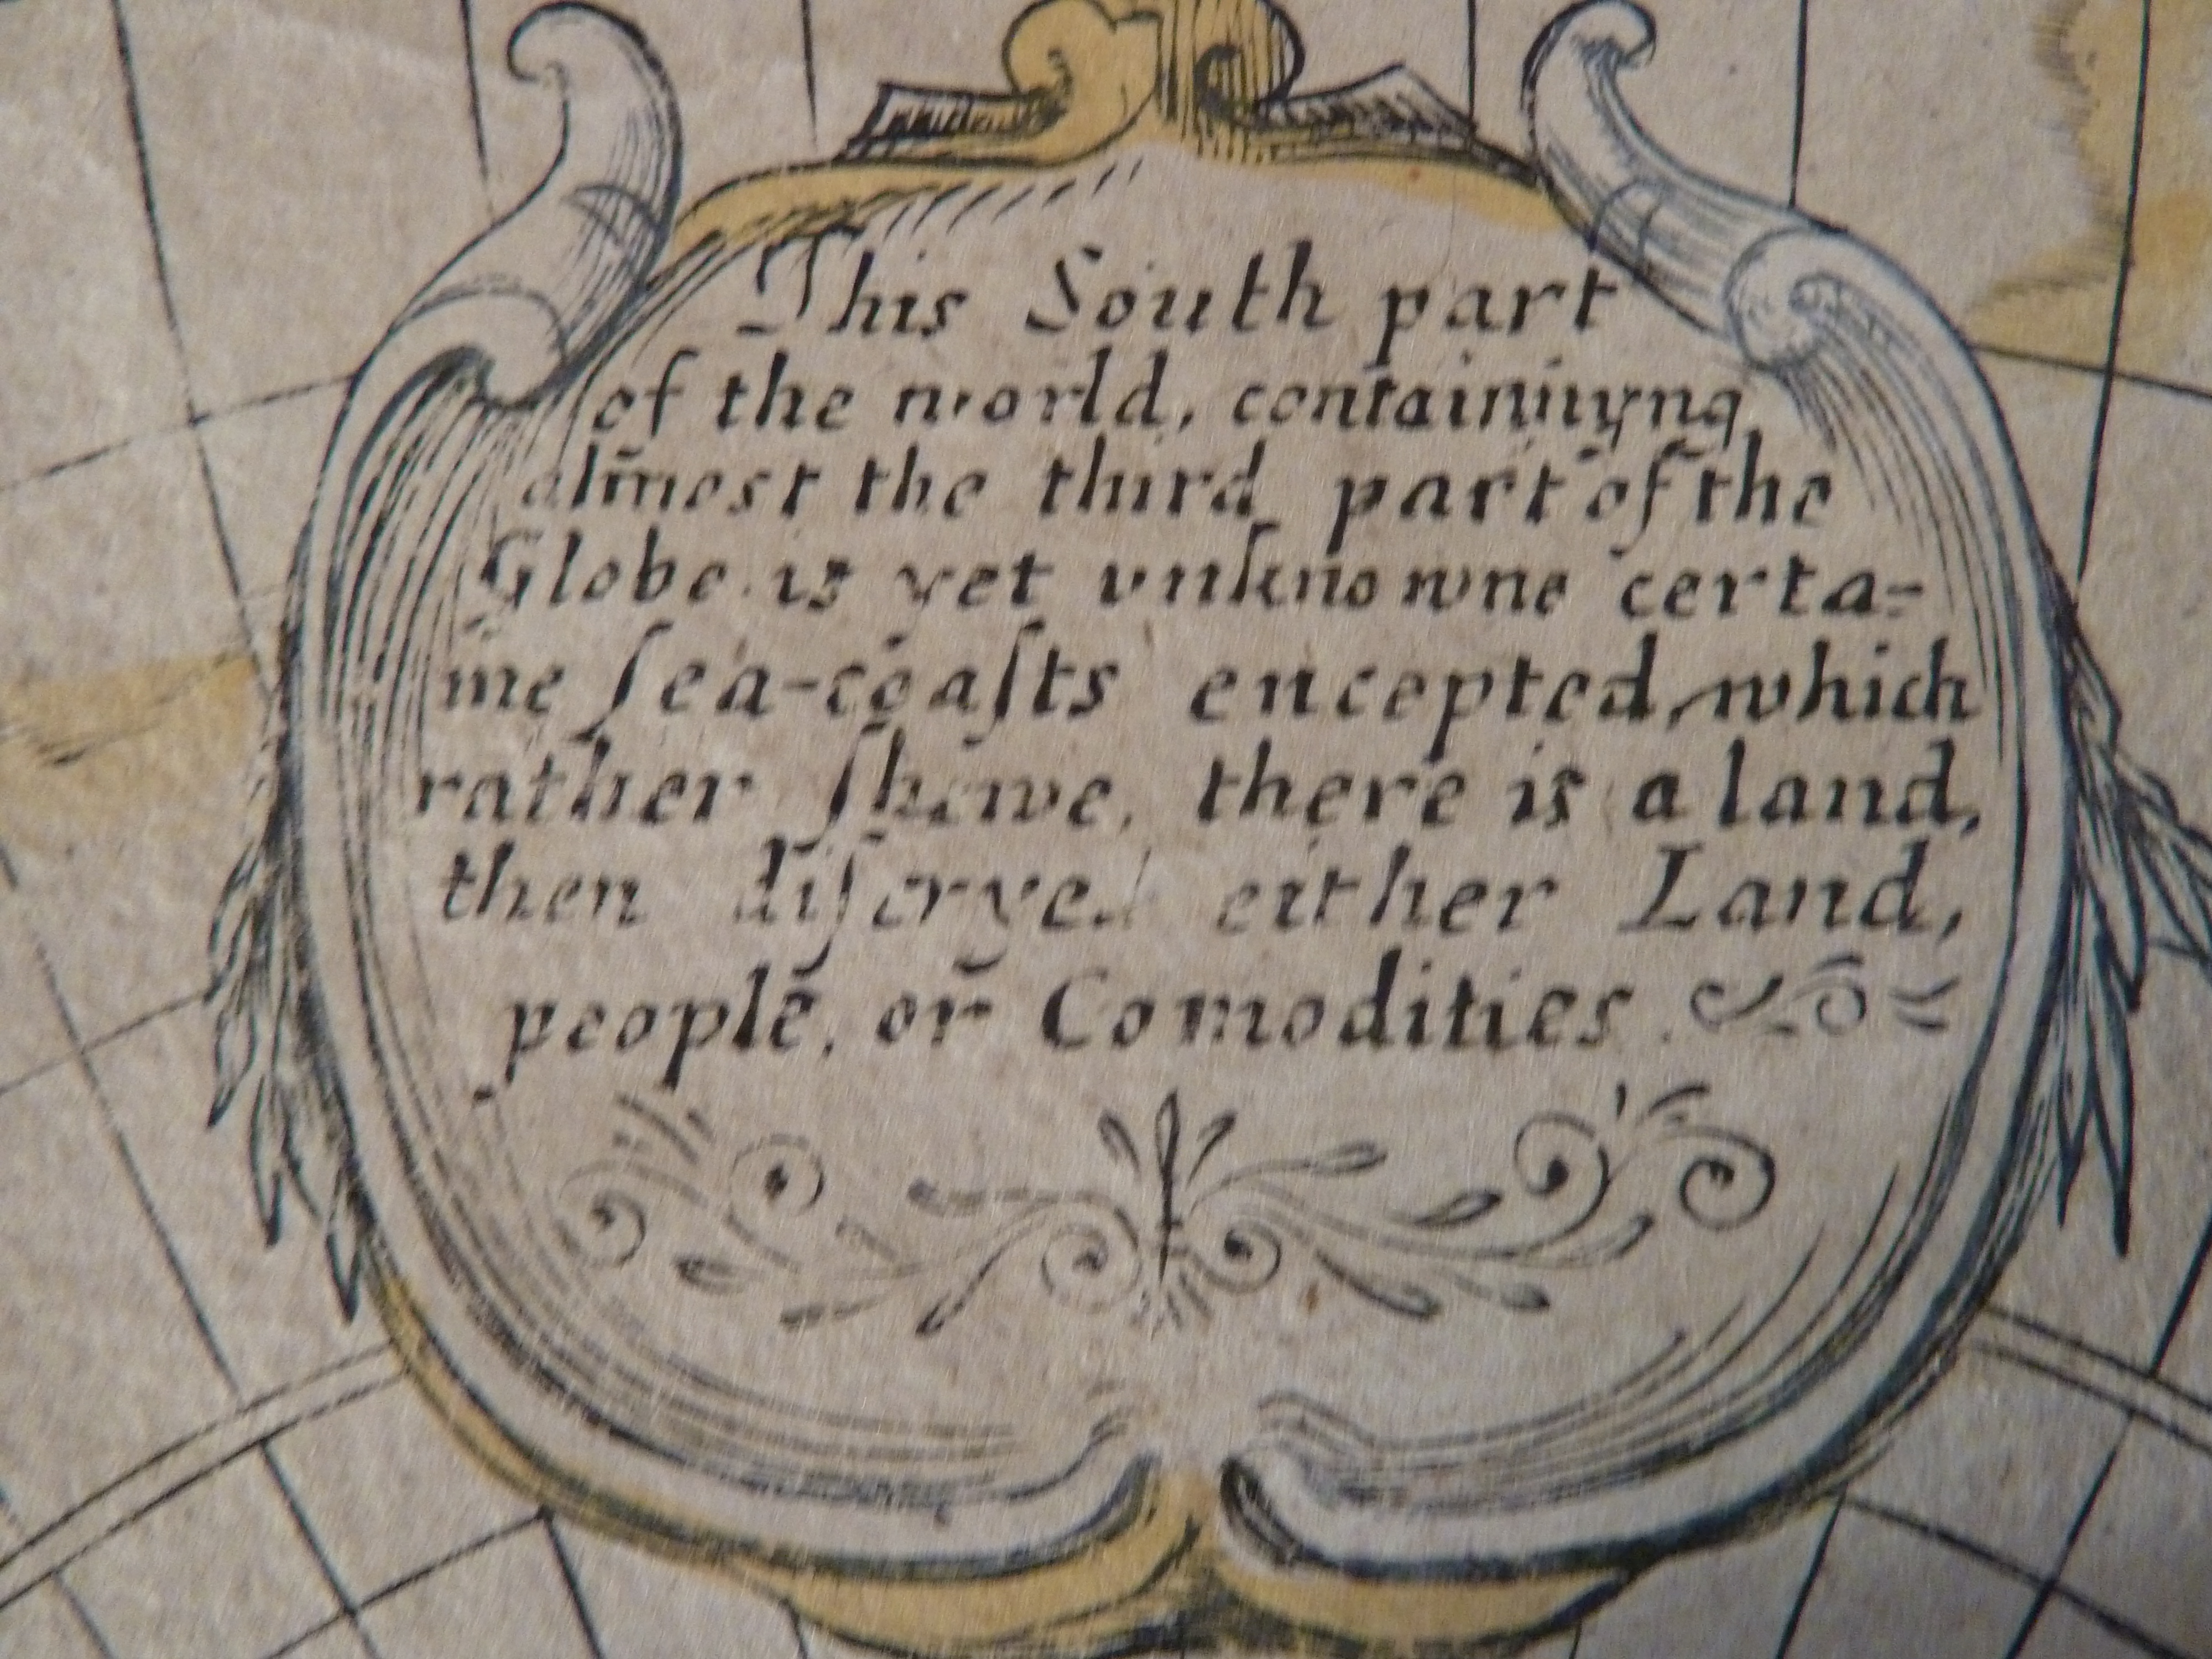 This South part
of the world, containinyng
almost the third part of the
Globe is yet vnknowne certa-
ine ſea-coaſts encepted, which
rather ſhewe, there is a land,
then diſcrye either Land,
people, or Comodities.